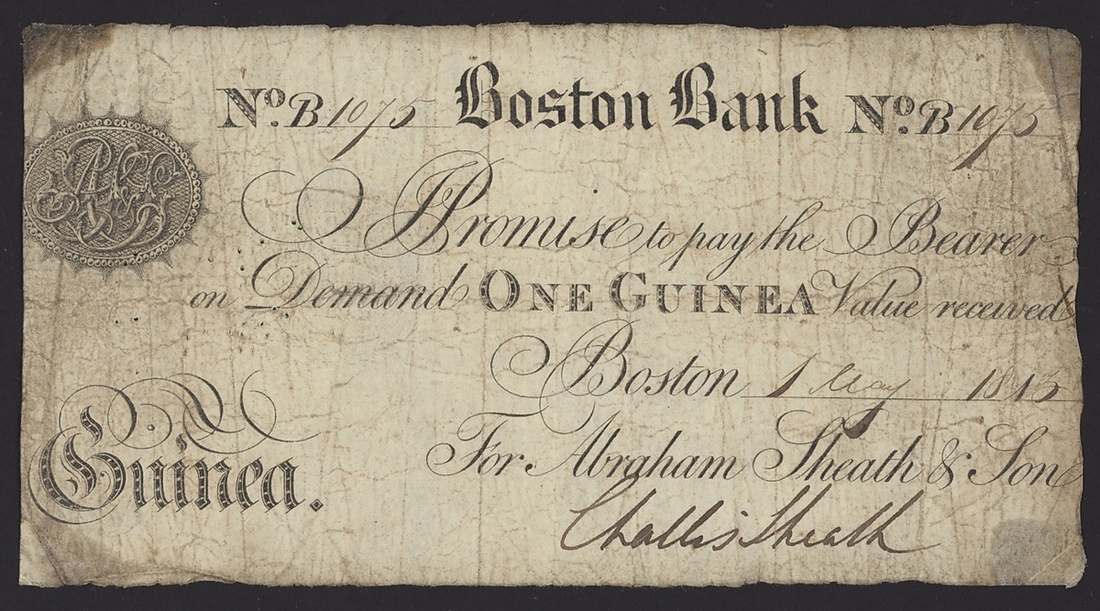 No. B 1075 Boston Bank No. B 1075
I Promise to pay the Bearer
on Demand ONE GUINEA Value received
Boston 1 May 1815
Guinea.
For Abraham Sheath & Son
Challis Sheath